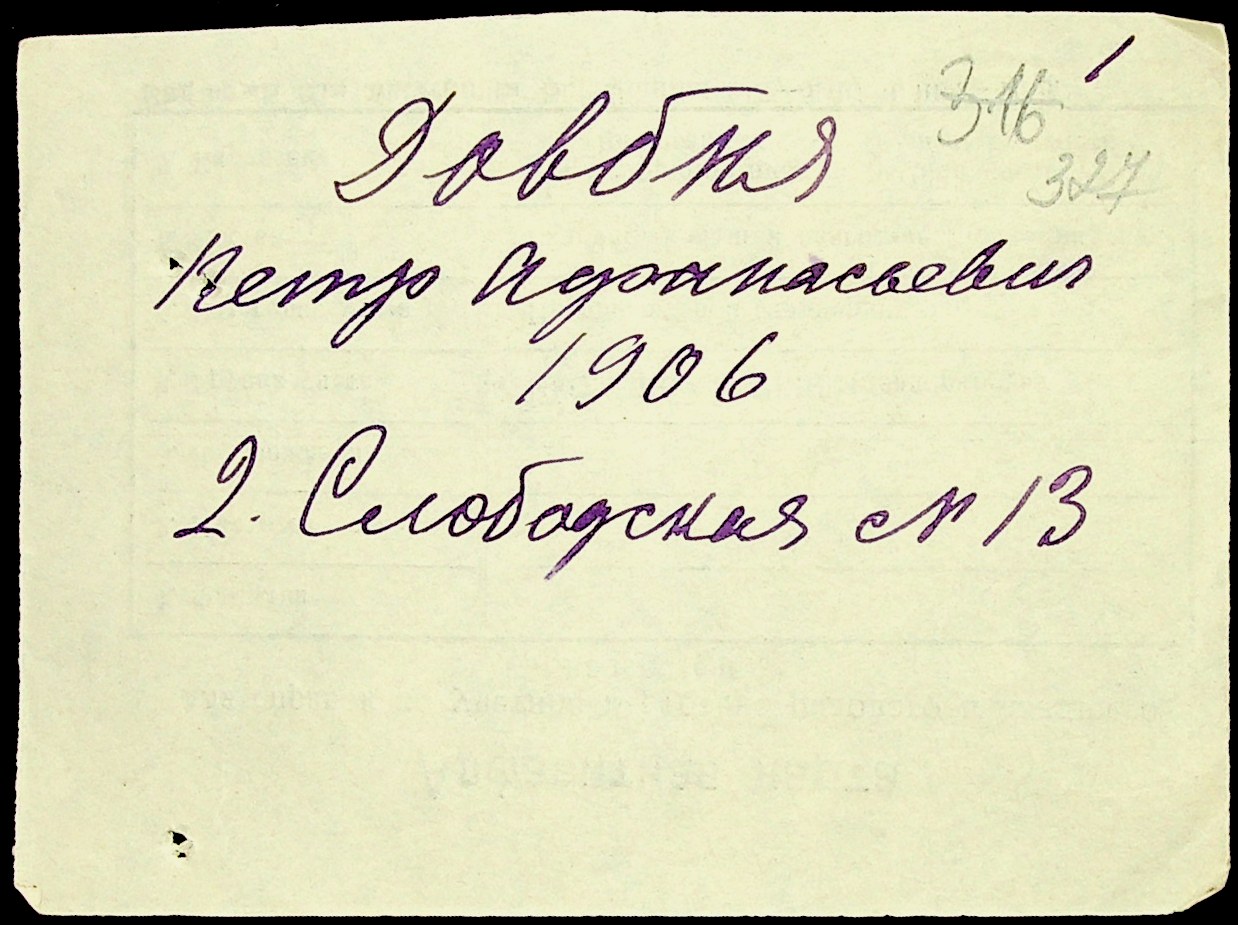 316
327
Довбня
Петр Афанасьевич
1906
2. Слободская № 13